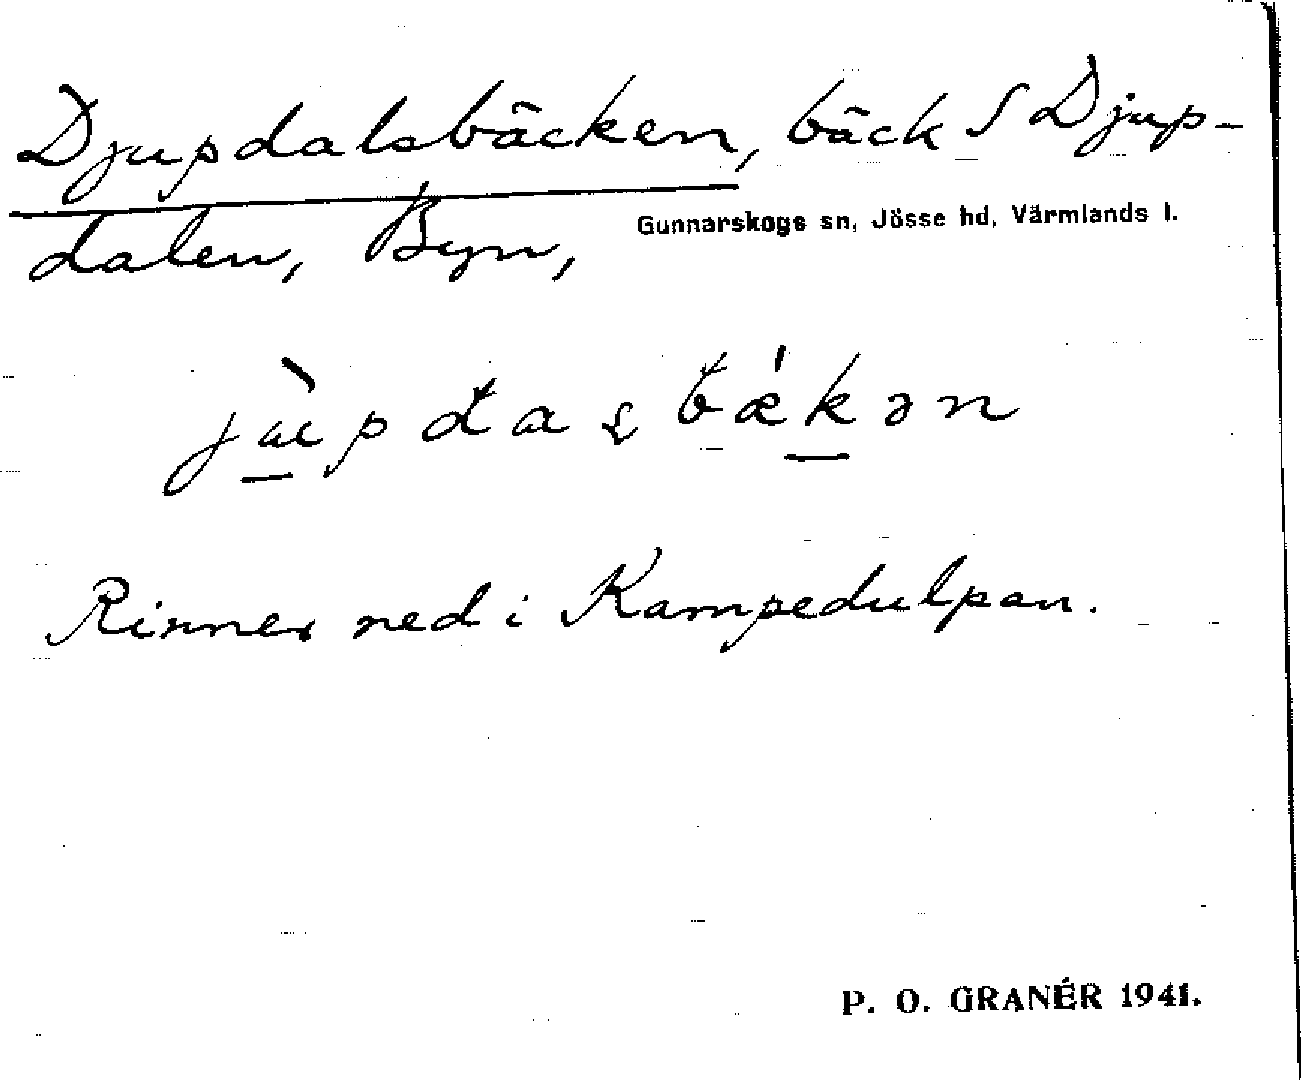 Djupdalsbäcken, bäck S Djup-
dalen, Byn,
Gunnarskogs sn, Jösse hd, Värmlands l.
Rinner ned i Kampedulpan.
P. O. GRANÉR 1941.